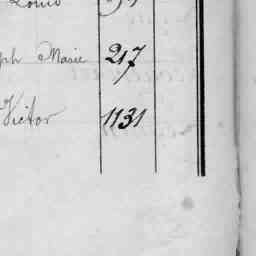 Louis
ph Marie 217
Victor 1131